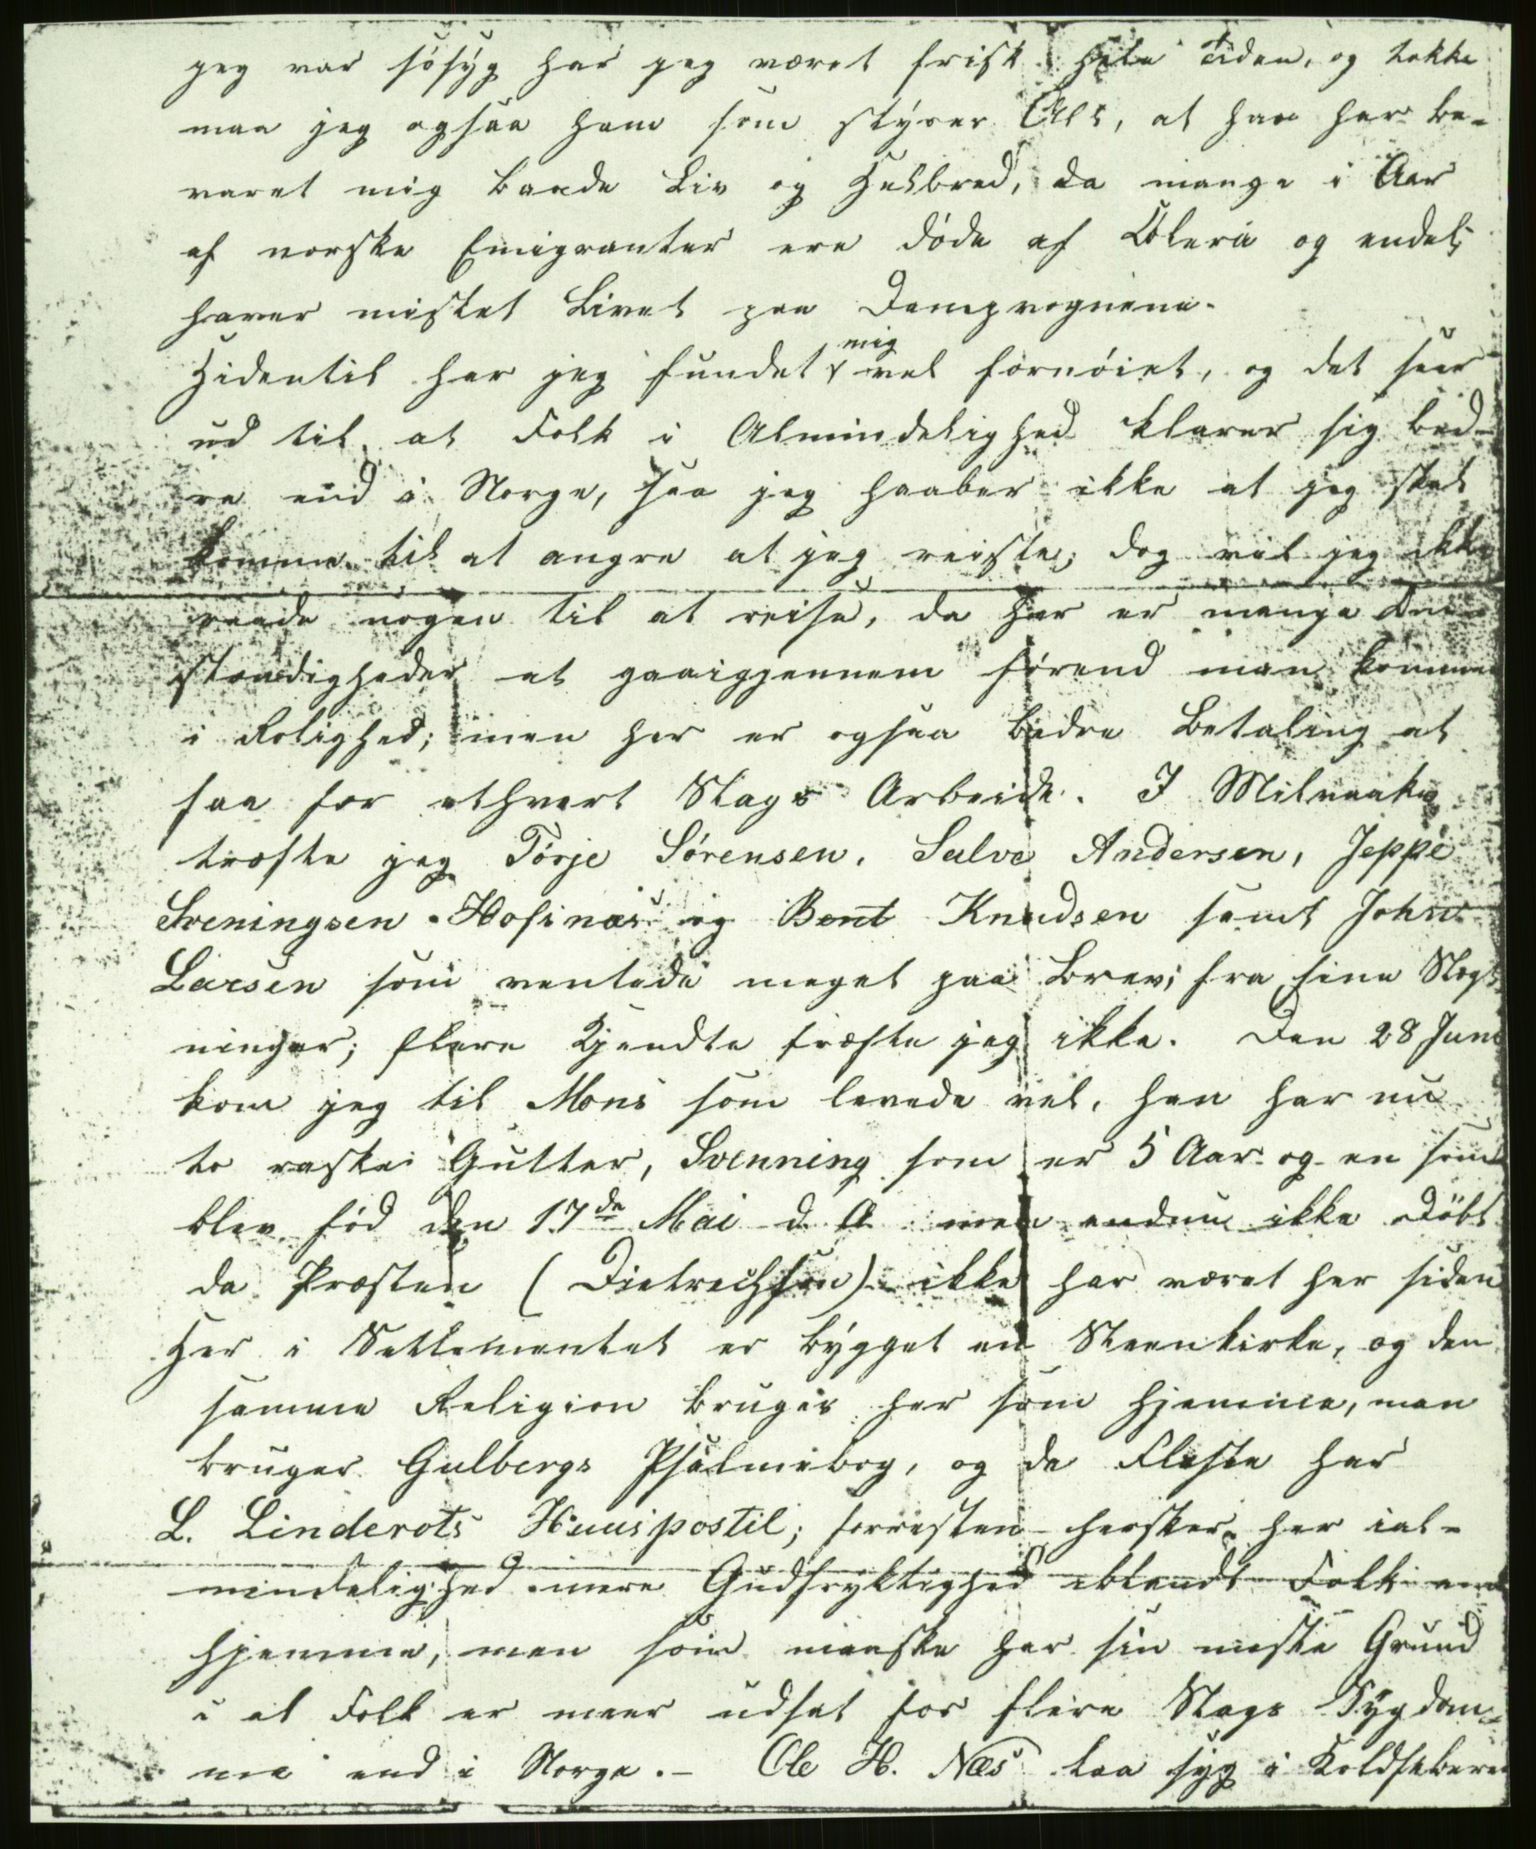 jeg var søsyg har jeg været frisk hele Tiden, og takke
maa jeg ogsaa ham som styrer Alt, at han har be-
varet mig baade Liv og Helbred, da mange i Aar
af norske Emigranter ere døde af Colera og endel
haver mistet Livet paa Dampvognene.
Hidentil har jeg fundet mig vel fornøiet, og det seer
ud til at Folk i Almindelighed klarer sig bed-
re end i Norge, saa jeg haaber ikke at jeg skal
komme til at angre at jeg reiste, dog vil jeg ikke
raade nogen til at reise, da her er mange Om-
stændigheder at gaaigjennem førend man kommer
i Rolighed; men her er ogsaa bedre Betaling at
faa for ethvert Slags Arbeide. I Milvaaki
træfte jeg Tørje Sørensen, Salve Andersen, Jeppe
Sveningsen Hofinæs og Bent Knudsen samt John
Larsen som ventede meget paa Brev fra sine Slægt
ninger; flere Kjendte træfte jeg ikke. Den 28 Juni
kom jeg til Mons som levede vel, han har nu
to raske Gutter, Svenning som er 5 Aar og en som
blev fød den 17de Mai d. A. men endnu ikke Døbt
da Præsten (Dietrechson) ikke har været her siden
Her i Settlementet er bygget en Steenkirke, og den
samme Religion bruges her som hjemme, man
bruger Gulbergs Psalmebog, og de Fleste har
L. Linderots Huuspostil; forresten hersker her ial-
mindelighed mere Gudfryktighed iblandt Folk end
hjemme, men som maaske har sin meste Grund
i at Folk er meer udsat for flere Slags Sygdom-
me end i Norge. - Ole H. Næs laa syg i Koldfeberen